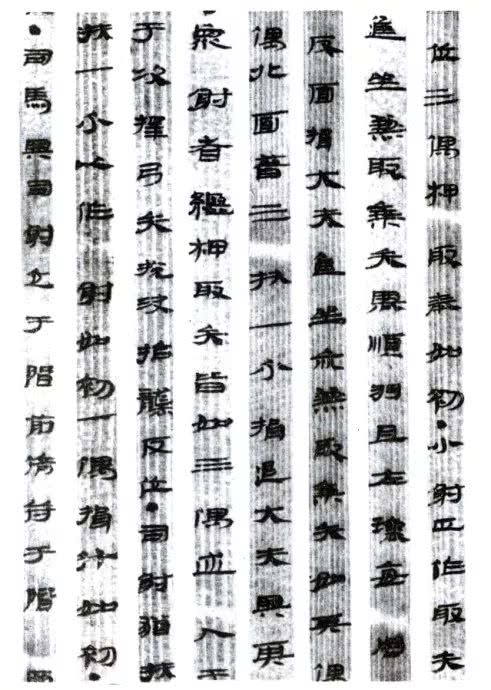 位三偶柙取如初●小射正作取矢
進坐兼取乘矢興順羽且左環毋周
反面揖大夫進坐亦兼取乘矢如其偶
偶北面晉三挾一个揖退大夫與其
眾射者繼柙取矢皆如三偶入于
于次擇弓矢說決拾襲反位●司射猶挾
挾一个以作射如初一偶揖升如初●
●司馬與司射交于階前倚侍于階西